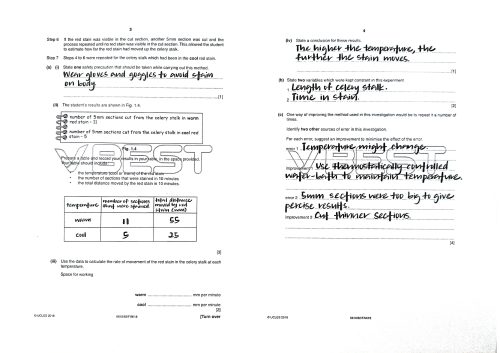 3
Step 6 If the red stain was visible in the cut section, another 5mm section was cut and the
process repeated until no red stain was visible in the cut section. This allowed the student
to estimate how far the red stain had moved up the celery stalk.
Step 7 Steps 4 to 6 were repeated for the celery stalk which had been in the cool red stain.
(a) (i) State one safety precaution that should be taken while carrying out this method.
Wear gloves and goggles to avoid stain
on body
[1]
(ii) The student's results are shown in Fig. 1.4.
number of 5mm sections cut from the celery stalk in warm
red stain - 11
number of 5mm sections cut from the celery stalk in cool red
stain - 5
Fig. 1.4
Prepare a table and record your results in your table, in the space provided.
Your table should include:
• the temperature of the red stain
• the number of sections that were stained in 10 minutes
• the total distance moved by the red stain in 10 minutes
temperature number of sections that were stained total distance moved by red stain (mm)
warm 11 55
cool 5 25
[3]
(iii) Use the data to calculate the rate of movement of the red stain in the celery stalk at each
temperature.
Space for working
warm mm per minute
cool mm per minute
[2]
© UCLES 2016
[Turn over
4
(iv) State a conclusion for these results.
The higher the temperature, the
further the stain moves.
[1]
(b) State two variables which were kept constant in this experiment
1 Length of celery stalk.
2 Time in stain.
[2]
(c) One way of improving the method used in this investigation would be to repeat it a number of
times.
Identify two other sources of error in this investigation.
For each error, suggest an improvement to minimise the effect of the error.
error 1 Temperature might change.
improvement 1 Use thermostatically controlled
water-bath to maintain temperature.
error 2 5mm sections were too big to give
percise results.
improvement 2 Cut thinner sections.
[4]
© UCLES 2016
VBEST
VBEST